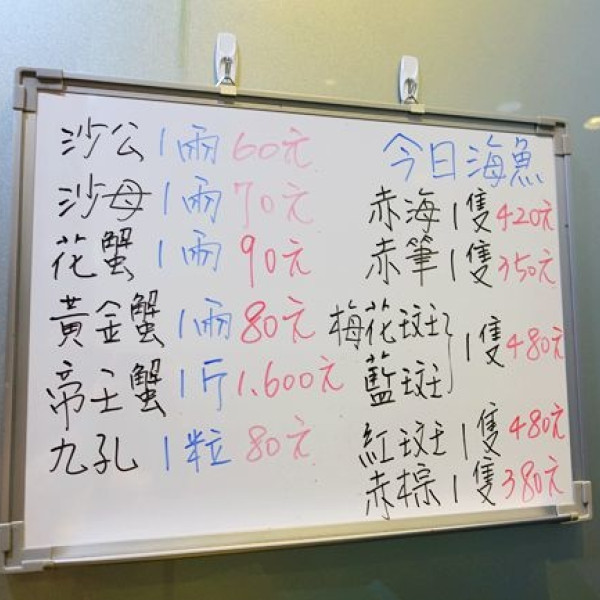 沙公1兩60元
沙母1兩70元
花蟹1兩90元
黃金蟹1兩80元
帝王蟹1斤1.600元
九孔1粒80元
今日海魚
赤海1隻420元
赤筆1隻350元
梅花斑
藍斑
1隻480元
紅斑1隻480元
赤棕1隻380元